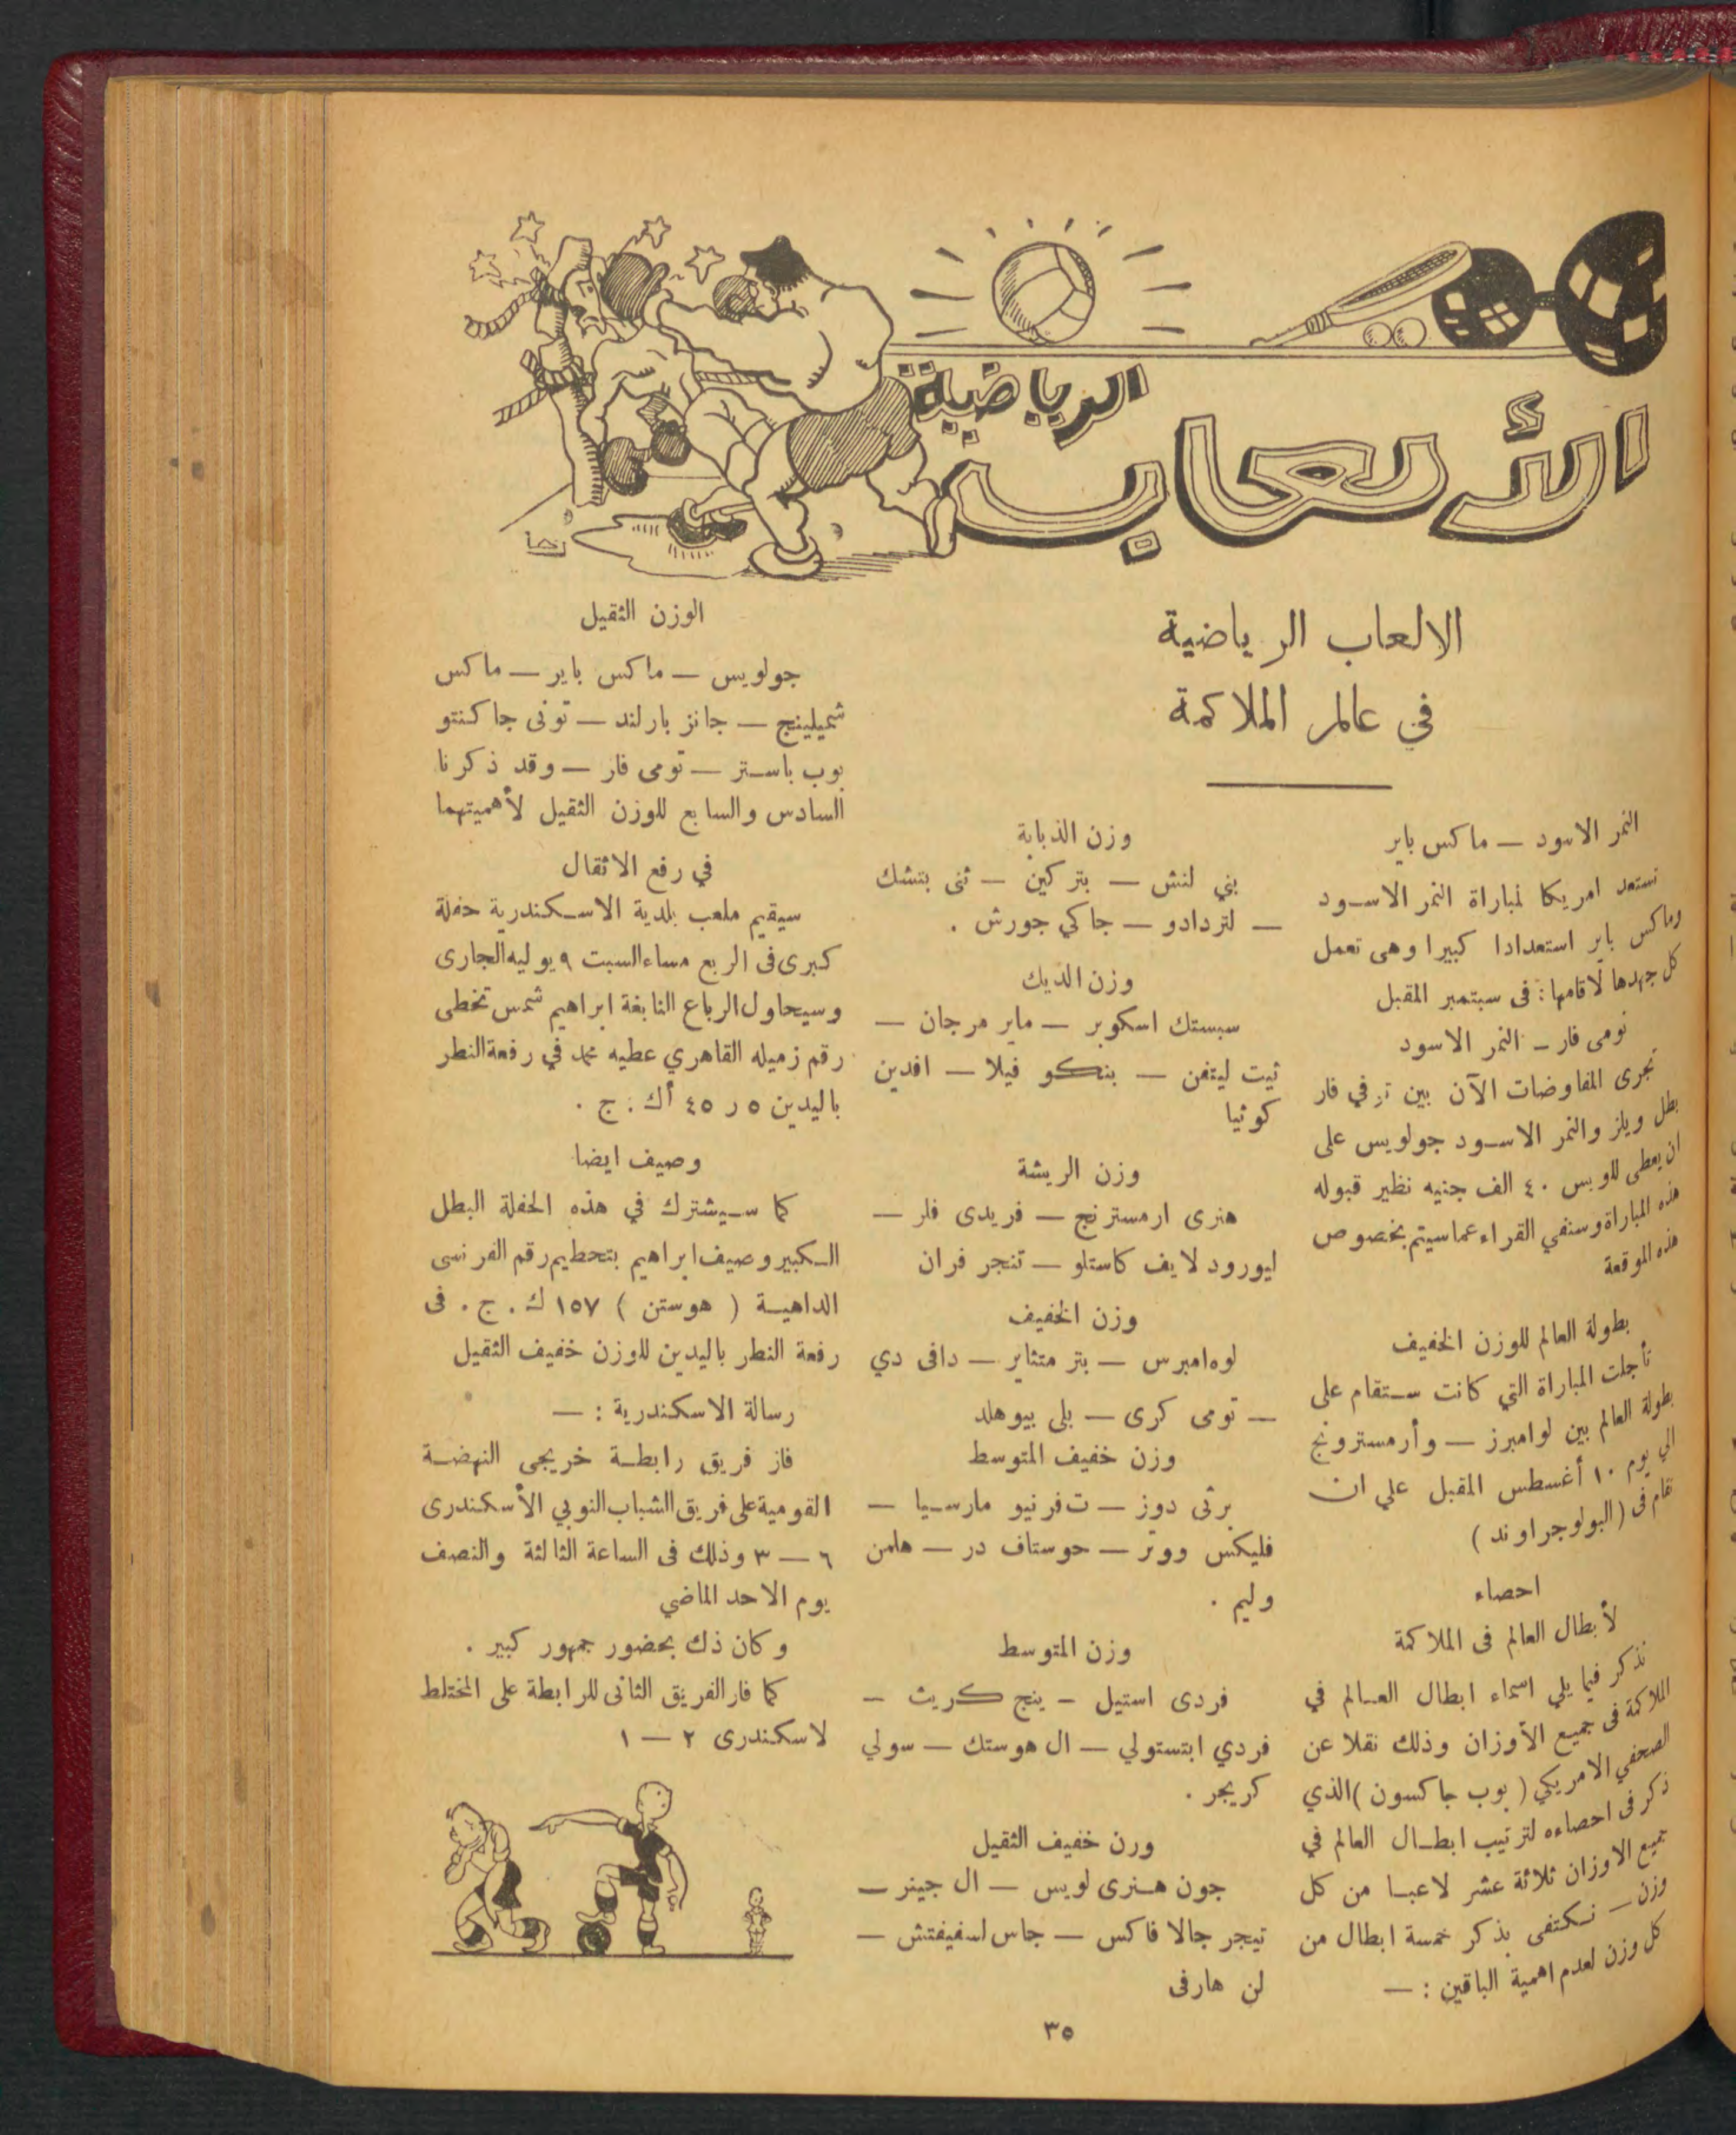 الألعاب
الرياضية
رخا
الالعاب الرياضية
في عالم الملاكمة
النمر الاسود — ماكس باير
تستعد امريكا لمباراة النمر الاسود
وماكس باير استعدادا كبيرا وهى تعمل
كل جهدها لاقامتها في سبتمبر المقبل
تومى فار — النمر الاسود
تجرى المفاوضات الآن بين فار
بطل ويلز والنمر الاسود جولويس على
ان يعطى للويس ٤٠ الف جنيه نظير قبوله
هذه المباراة وسنفي القراء عما سيتم بخصوص
هذه الموقعة
بطولة العالم للوزن الخفيف
تأجلت المباراة التي كانت ستقام على
بطولة العالم بين لوامبرز — وأرمسترونج
الي يوم ١٠ أغسطس المقبل علي ان
تقام فى (البولوجراوند)
احصاء
لأبطال العالم فى الملاكمة
نذكر فيما يلي اسماء ابطال العالم في
الملاكمة فى جميع الأوزان وذلك نقلا عن
الصحفي الامريكي (بوب جاكسون) الذي
ذكر فى احصاءه لترتيب ابطال العالم في
جميع الاوزان ثلاثة عشر لاعبا من كل
وزن — نكتفى بذكر خمسة ابطال من
كل وزن لعدم اهمية الباقين : —
وزن الذبابة
بني لنش — بتر كين — ثنى بتشك
— لتردادو — جاكي جورش .
وزن الديك
سبستك اسكوبر — ماير مرجان —
ثيت ليتفن — بنكو فيلا — افدين
كوثيا
وزن الريشة
هنرى ارمسترنج — فريدى فلر —
ليورود لايف كاستلو — تنجر فران
وزن الخفيف
لوه امبرس — بتر متثاير — دافى دي
— تومى كرى — بلى بيوهلد
وزن خفيف المتوسط
برثى دوز — ت فرنيو مارسيا —
فليكس ووتر — حوستاف در — هلمن
وليم .
وزن المتوسط
فردى استيل — ينج كريث —
فردي ابتستولي — ال هوستك — سولي
كريجر .
ورن خفيف الثقيل
جون هنرى لويس — ال جينر —
تيجر جالا فاكس — جاس لسفيفتش —
لن هارفى
الوزن الثقيل
جولويس — ماكس باير — ماكس
شميلينج — جانز بارلند — تونى جاكنتو
بوب باستر — تومى فار — وقد ذكرنا
السادس والسابع للوزن الثقيل لأهميتهما
في رفع الاثقال
سيقيم ملعب بلدية الاسكندرية حفلة
كبرى فى الربع مساء السبت ٩ يوليه الجارى
وسيحاول الرباع النابغة ابراهيم شمس تخطى
رقم زميله القاهري عطيه محمد في رفعة النطر
باليدين ٥ر٤٥ أك . ج .
وصيف ايضا
كما سيشترك في هذه الحفلة البطل
الكبير وصيف ابراهيم بتحطيم رقم الفرنسى
الداهية ( هوستن ) ١٥٧ ك . ج . فى
رفعة النطر باليدين للوزن خفيف الثقيل
رسالة الاسكندرية : —
فاز فريق رابطة خريجى النهضة
القومية على فريق الشباب النوبي الأسكندرى
٦ — ٣ وذلك فى الساعة الثالثة والنصف
يوم الاحد الماضي
وكان ذك بحضور جمهور كبير .
كما فار الفريق الثانى للرابطة على المختلط
لاسكندرى ٢ — ١
٣٥